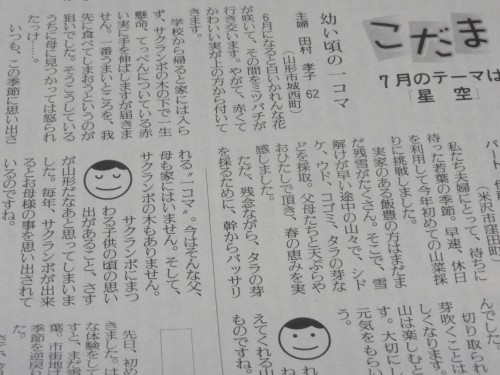 こだま
7月のテーマは
「星空」
(米沢市窪田町
私たち夫婦にとって、待ちに
待った若葉の季節。早速、休日
を利用して今年初めての山菜採
りに挑戦しました。
実家のある飯豊の方はまだま
だ残雪がたくさん。そこで、雪
解けが早い途中の山々で、シド
ケ、ウド、コゴミ、タラの芽な
どを採取。父母たちと天ぷらや
おひたしで頂き、春の恵みを実
感しました。
ただ、残念ながら、タラの芽
を採るために、幹からバッサリ
んでした。
切り取られ
芽吹くことは
しくなります。
山は楽しむと
す。大切にし
元気をもらい
う。
えてくれる山
ものですね。
幼い頃の一コマ
主婦 田村 孝子 62
(山形市城西町)
6月になると白いかれんな花
が咲いて、その間をミツバチが
行き交います。やがて、赤くて
かわいい実が上の方から付いて
きます。
学校から帰ると家には入ら
ず、サクランボの木の下で一生
懸命、てっぺんについている赤
い実に手を伸ばしますが届きま
せん。一番うまいところを、我
先に食べてしまおうというのが
狙いでした。そうこうしている
うちに母に見つかっては怒られ
たっけ…。
いつも、この季節に思い出さ
れる“一コマ”。今はそんな父、
母も家にはいません。そして、
サクランボの木もありません。
サクランボにまつ
わる子供の頃の思い
出があること、さす
が山形だなあと思ってしまいま
した。毎年、サクランボが出来
るとお母様の事を思い出されて
いるのですね。
先日、初め
きました。は
な体験をして
すと、まだ雪
葉。市街地は
季節を逆戻り